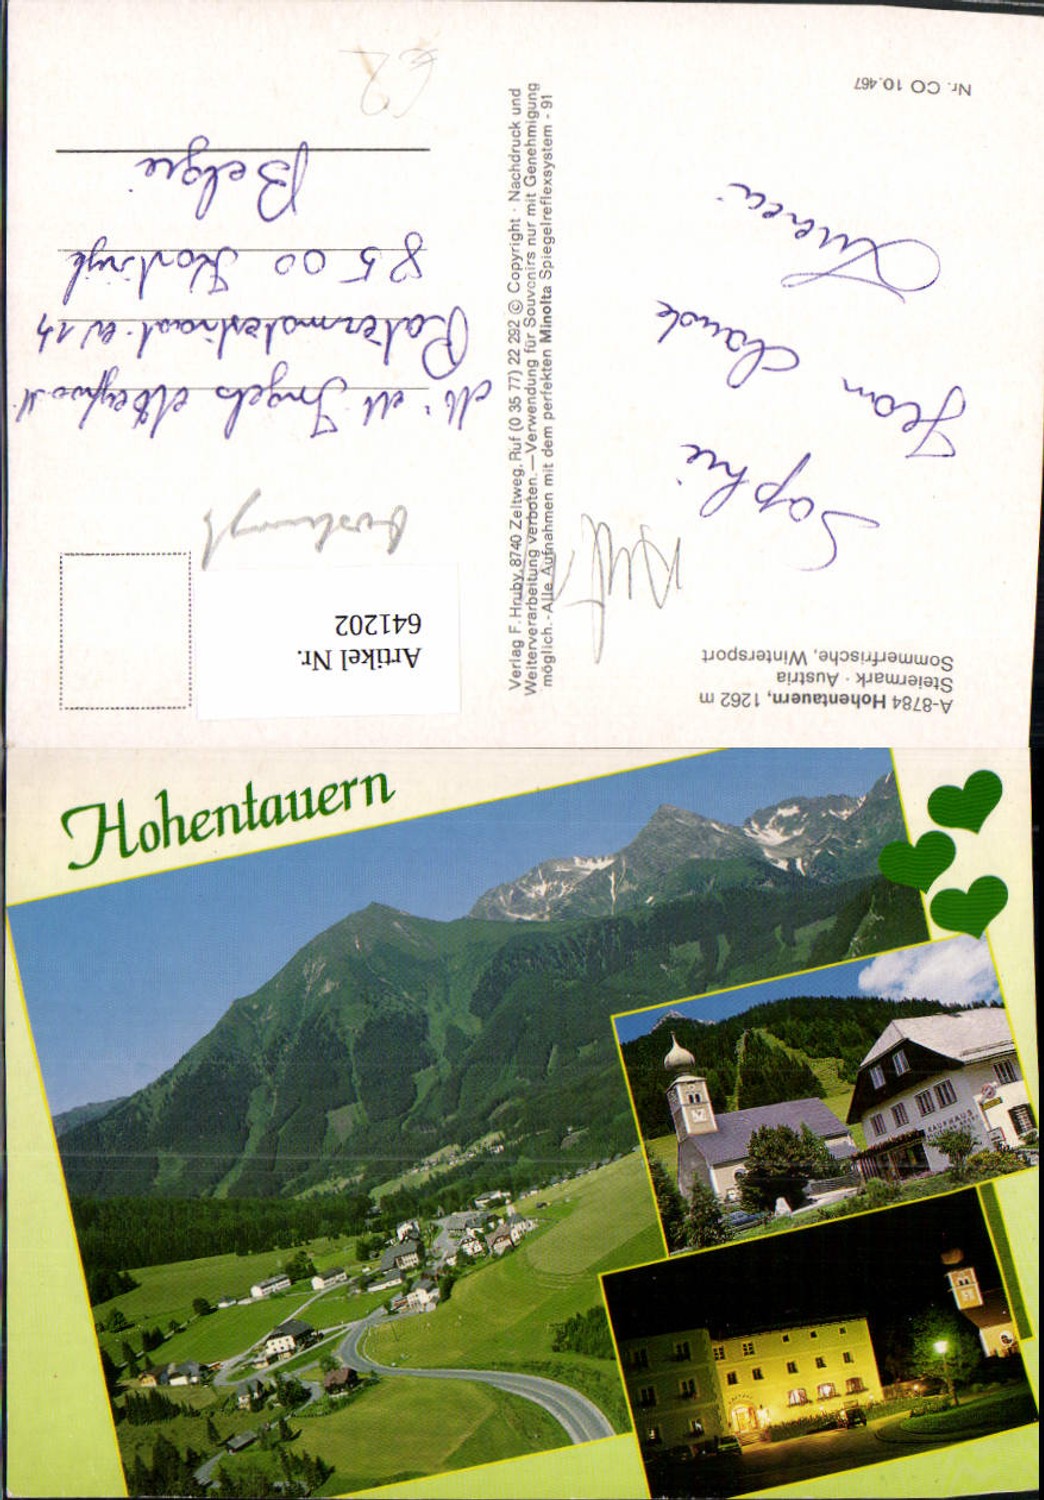 A-8784 Hohentauern, 1262 m
Steiermark · Austria
Sommerfrische, Wintersport
Sophie
Jean Claude
Nr. CO 10.467
Verlag F. Hruby, 8740 Zeltweg, Ruf (0 35 77) 22 292 © Copyright · Nachdruck und
Weiterverarbeitung verboten. — Verwendung für Souvenirs nur mit Genehmigung
möglich. - Alle Aufnahmen mit dem perfekten Minolta Spiegelreflexsystem - 91
Artikel Nr.
641202
Ingels
8500 Kortrijk
Belgie
Hohentauern
KAUFHAUS